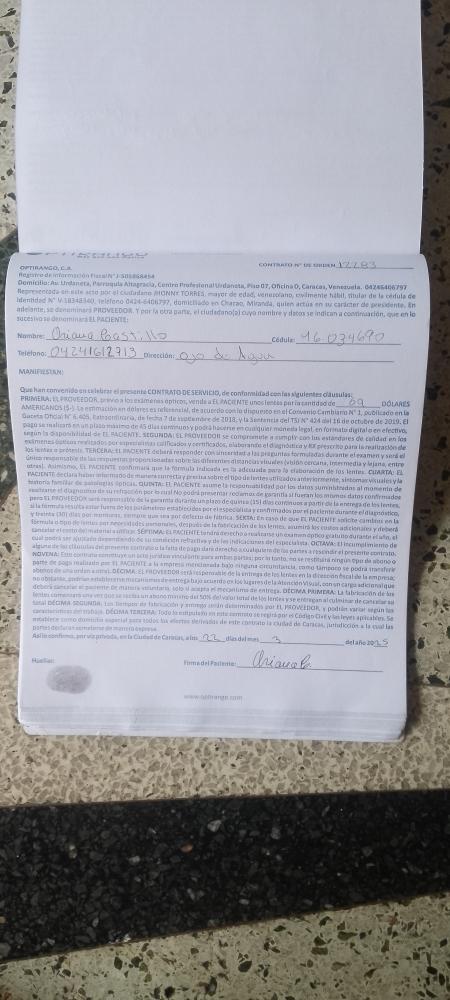 CONTRATO N° DE ORDEN 12283
OPTIRANGO, C.A.
Registro de Información Fiscal N° J-505868454
Domicilio: Av. Urdaneta, Parroquia Altagracia, Centro Profesional Urdaneta, Piso 07, Oficina 0, Caracas, Venezuela. 04246406797
Representada en este acto por el ciudadano JHONNY TORRES, mayor de edad, venezolano, civilmente hábil, titular de la cédula de
Identidad N° V-18348340, teléfono 0424-6406797, domiciliado en Charao, Miranda, quien actúa en su carácter de presidente. En
adelante, se denominará PROVEEDOR. Y por la otra parte, el ciudadano(a) cuyo nombre y datos se indican a continuación, que en lo
sucesivo se denominará EL PACIENTE:
Nombre: Oriana Castillo Cédula: 16.034690
Teléfono: 04241612713 Dirección: Ojo de Agua
MANIFIESTAN:
Que han convenido en celebrar el presente CONTRATO DE SERVICIO, de conformidad con las siguientes cláusulas:
PRIMERA: EL PROVEEDOR, previo a los exámenes ópticos, vende a EL PACIENTE unos lentes por la cantidad de 09 DÓLARES
AMERICANOS ($-). La estimación en dólares es referencial, de acuerdo con lo dispuesto en el Convenio Cambiario N° 1, publicado en la
Gaceta Oficial N° 6.405, Extraordinaria, de fecha 7 de septiembre de 2018, y la Sentencia del TSJ N° 424 del 16 de octubre de 2019. El
pago se realizará en un plazo máximo de 45 días continuos y podrá hacerse en cualquier moneda legal, en formato digital o en efectivo,
según la disponibilidad de EL PACIENTE. SEGUNDA: EL PROVEEDOR se compromete a cumplir con los estándares de calidad en los
exámenes ópticos realizados por especialistas calificados y certificados, elaborando el diagnóstico y RX prescrito para la realización de
los lentes o prótesis. TERCERA: EL PACIENTE deberá responder con sinceridad a las preguntas formuladas durante el examen y será el
único responsable de las respuestas proporcionadas sobre las diferentes distancias visuales (visión cercana, intermedia y lejana, entre
otras). Asimismo, EL PACIENTE confirmará que la fórmula indicada es la adecuada para la elaboración de los lentes. CUARTA: EL
PACIENTE declara haber informado de manera correcta y precisa sobre el tipo de lentes utilizados anteriormente, síntomas visuales y la
historia familiar de patologías ópticas. QUINTA: EL PACIENTE asume la responsabilidad por los datos suministrados al momento de
realizarse el diagnóstico de su refracción por lo cual No podrá presentar reclamos de garantía si fueran los mismos datos confirmados
pero EL PROVEEDOR será responsable de la garantía durante un plazo de quince (15) días continuos a partir de la entrega de los lentes,
si la fórmula resulta estar fuera de los parámetros establecidos por el especialista y confirmados por el paciente durante el diagnóstico,
y treinta (30) días por monturas, siempre que sea por defecto de fábrica. SEXTA: En caso de que EL PACIENTE solicite cambios en la
fórmula o tipo de lentes por necesidades personales, después de la fabricación de los lentes, asumirá los costos adicionales y deberá
cancelar el costo del material a utilizar. SÉPTIMA: EL PACIENTE tendrá derecho a realizarse un examen óptico gratuito durante el año, el
cual podrá ser ajustado dependiendo de su condición refractiva y de las indicaciones del especialista. OCTAVA: El incumplimiento de
alguna de las cláusulas del presente contrato o la falta de pago dará derecho a cualquiera de las partes a rescindir el presente contrato.
NOVENA: Este contrato constituye un acto jurídico vinculante para ambas partes; por lo tanto, no se restituirá ningún tipo de abono o
parte de pago realizado por EL PACIENTE a la empresa mencionada bajo ninguna circunstancia, como tampoco se podrá transferir
abonos de una orden a otra. DÉCIMA: EL PROVEEDOR será responsable de la entrega de los lentes en la dirección fiscal de la empresa;
no obstante, podrían establecerse mecanismos de entrega bajo acuerdo en los lugares de la Atención Visual, con un cargo adicional que
deberá cancelar el paciente de manera voluntaria, solo si acepta el mecanismo de entrega. DÉCIMA PRIMERA: La fabricación de los
lentes comenzará una vez que se reciba un abono mínimo del 50% del valor total de los lentes y se entregan al culminar de cancelar su
total DÉCIMA SEGUNDA: Los tiempos de fabricación y entrega serán determinados por EL PROVEEDOR, y podrán variar según las
características del trabajo. DÉCIMA TERCERA: Todo lo estipulado en este contrato se regirá por el Código Civil y las leyes aplicables. Se
establece como domicilio especial para todos los efectos derivados de este contrato la ciudad de Caracas, jurisdicción a la cual las
partes declaran someterse de manera expresa.
Así lo confirma, por vía privada, en la Ciudad de Caracas, a los 22 días del mes 3 del año 2025
Huellas: Firma del Paciente: Oriana C.
www.optirango.com